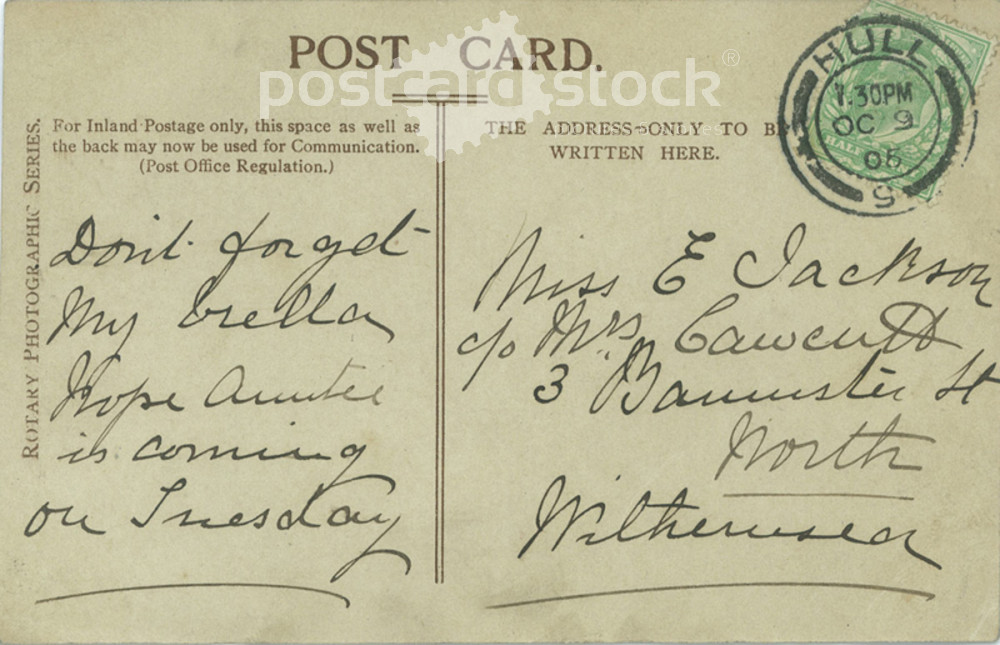 POST CARD.
postcardstock®
ROTARY PHOTOGRAPHIC SERIES.
For Inland Postage only, this space as well as
the back may now be used for Communication.
(Post Office Regulation.)
THE ADDRESS ONLY TO BE
WRITTEN HERE.
HULL
1.30PM
OC 9
05
S
Don't forget
My brella
Hope Auntie
is coming
on Tuesday
Miss E Jackson
c/o Mrs Cawcutt
3 Bannister St
North
Withernsea